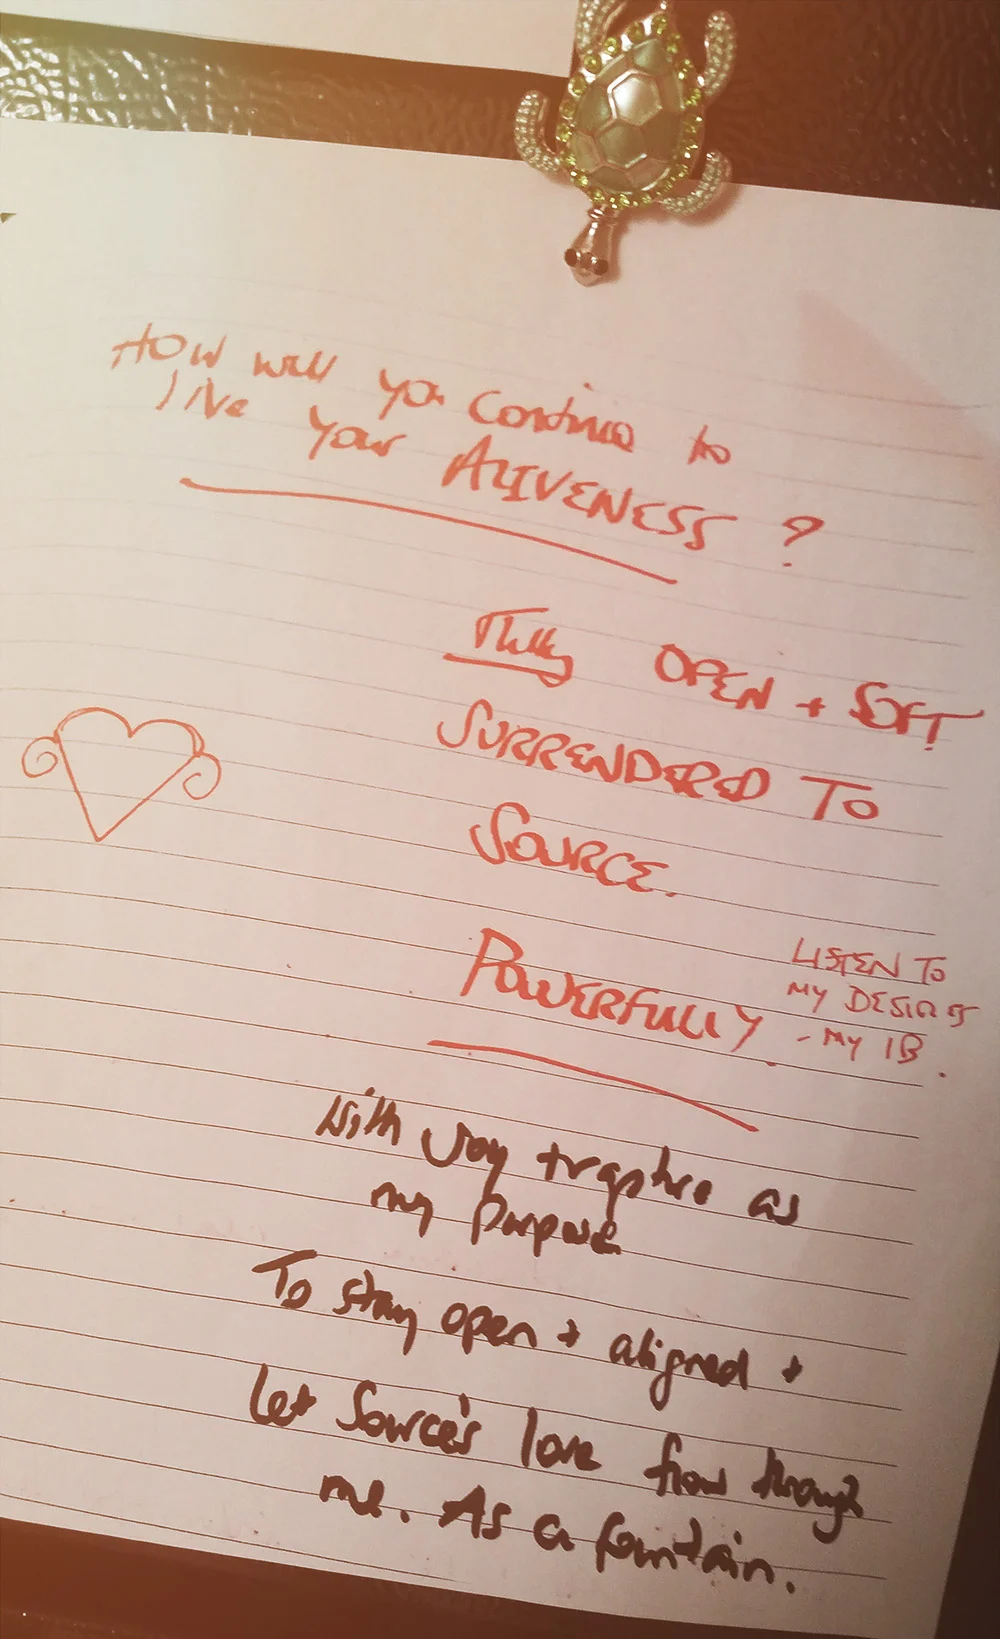 HOW will you continue to
live your ALIVENESS ?
Fully OPEN + SOFT
SURRENDERED TO
SOURCE.
POWERFULLY.
LISTEN TO
MY DESIRES
- MY IB.
With Joy as
my purpose
To stay open + aligned +
let Source's love flow through
me. As a fountain.